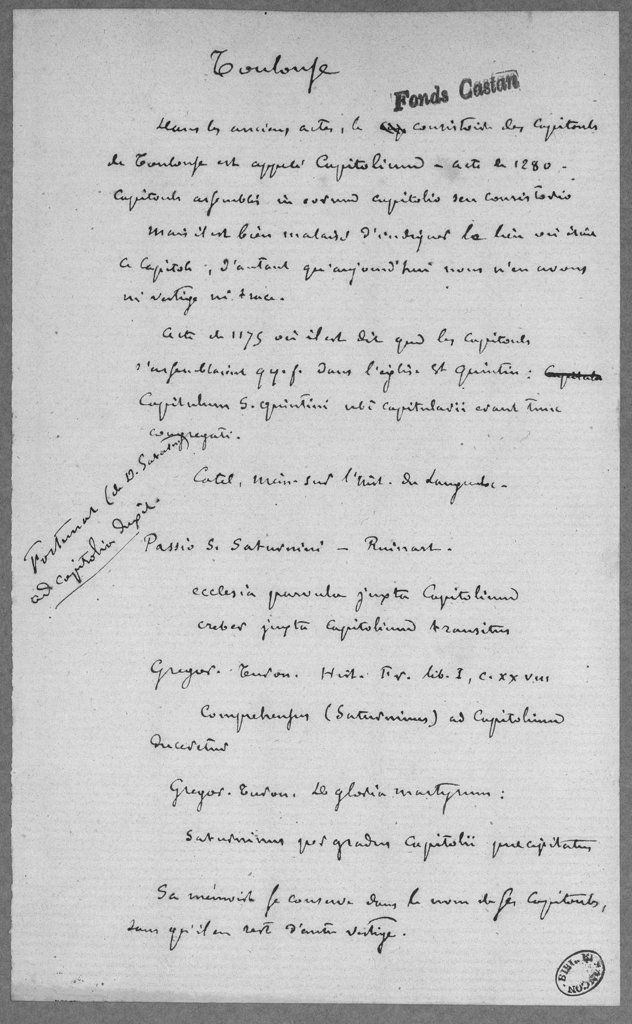 Toulouse
Fonds Castan
Dans les anciens actes, le consistoire des Capitouls
de Toulouse est appelé Capitolium – acte de 1280 –
Capitouls assemblés in eorum capitolio seu consistorio
Mais il est bien malaisé d'indiquer le lieu où était
ce Capitole, d'autant qu'aujourd'hui nous n'en avons
ni vestige ni trace.
Acte de 1175 où il est dit que les Capitouls
s'assemblaient qq. f. dans l'église St Quintin :
Capitulum S. Quintini ubi capitularii erant tunc
congregati.
Catel, mém. sur l'hist. du Languedoc.
Fortunat (de D. Saturnin)
ad capitolia duxit.
Passio S. Saturnini – Ruinart.
ecclesia parvula juxta Capitolium
creber juxta Capitolium transitus
Gregor. Turon. Hist. Fr. lib. I, c. xxviii
Comprehensus (Saturninus) ad Capitolium
duceretur
Gregor. Turon. De gloria martyrum :
Saturninus per gradus Capitolii precipitatus
Sa mémoire se conserve dans le nom de ses Capitouls,
sans qu'il en reste d'autre vestige.